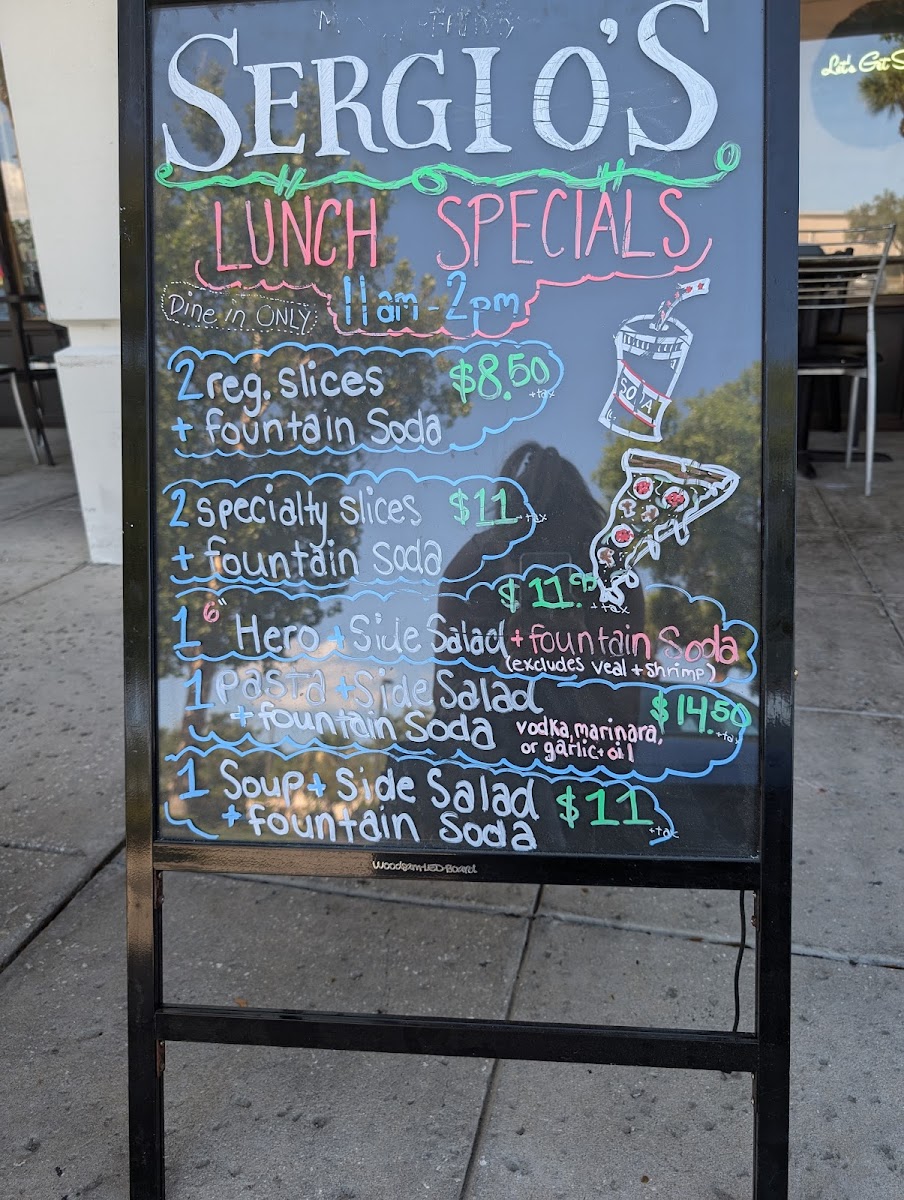 SERGIO'S
LUNCH SPECIALS
Dine in ONLY
11am-2pm
2 reg. slices $8.50 +tax
+ fountain Soda
SODA
2 specialty slices $11 +tax
+ fountain Soda
$11.95 +tax
1 6" Hero + Side Salad + fountain Soda
(excludes veal + shrimp)
1 pasta + Side Salad
+ fountain Soda
$14.50 +tax
vodka, marinara,
or garlic + oil
1 Soup + Side Salad $11 +tax
+ fountain Soda
Woodsam LED Board
Let's Get